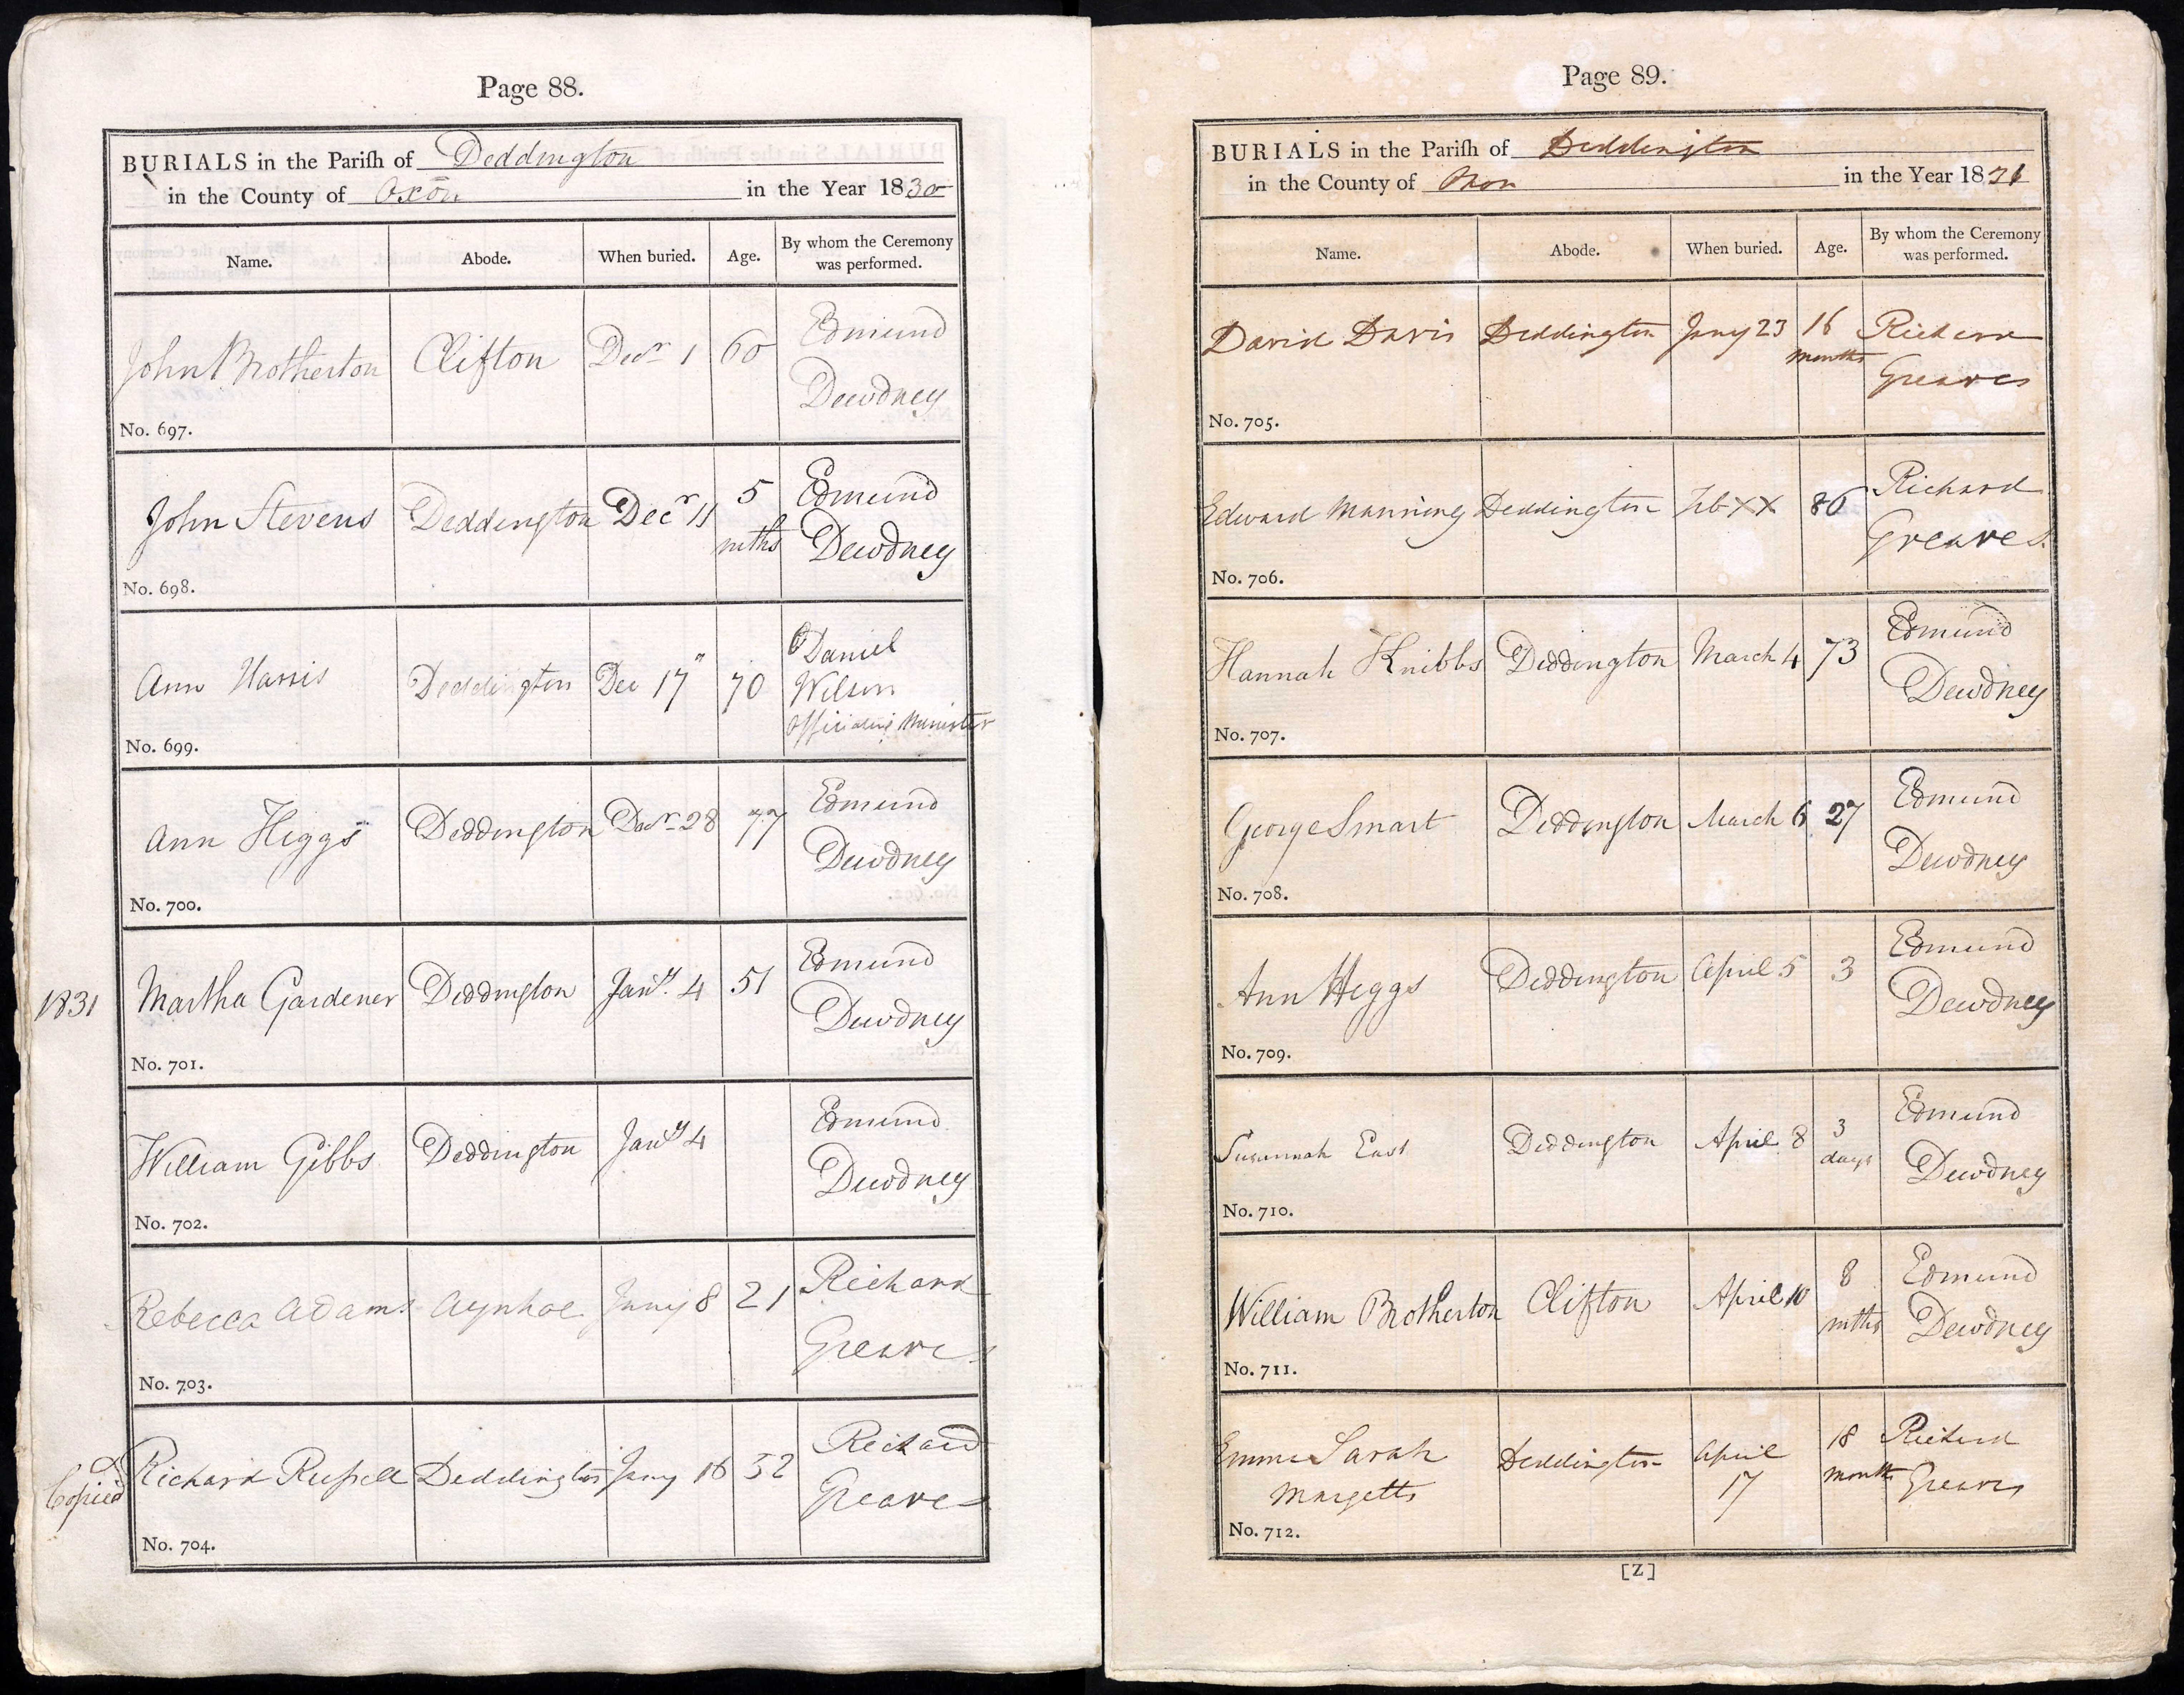 Page 88.
BURIALS in the Pariſh of Deddington
in the County of Oxōn in the Year 1830
Name. Abode. When buried. Age. By whom the Ceremony was performed.
John Brotherton Clifton Decr 1 60 Edmund Dewdney
No. 697.
John Stevens Deddington Decr 11 5 mths Edmund Dewdney
No. 698.
Ann Harris Deddington Dec 17 70 Daniel Wilson officiating Minister
No. 699.
Ann Higgs Deddington Decr 28 77 Edmund Dewdney
No. 700.
1831 Martha Gardener Deddington Jany. 4 51 Edmund Dewdney
No. 701.
William Gibbs Deddington Jany 4 Edmund Dewdney
No. 702.
Rebecca Adams Aynhoe Jany 8 21 Richard Greaves
No. 703.
Copied Richard Ruſsell Deddington Jany 16 52 Richard Greaves
No. 704.
Page 89.
BURIALS in the Pariſh of Deddington
in the County of Oxon in the Year 1831
Name. Abode. When buried. Age. By whom the Ceremony was performed.
David Davis Deddington Jany 23 16 months Richard Greaves
No. 705.
Edward Manning Deddington Feb XX 86 Richard Greaves
No. 706.
Hannah Knibbs Deddington March 4 73 Edmund Dewdney
No. 707.
George Smart Deddington March 6 27 Edmund Dewdney
No. 708.
Ann Higgs Deddington April 5 3 Edmund Dewdney
No. 709.
Susannah East Deddington April 8 3 days Edmund Dewdney
No. 710.
William Brotherton Clifton April 10 8 mths Edmund Dewdney
No. 711.
Emma Sarah Margetts Deddington April 17 18 months Richard Greaves
No. 712.
[Z]